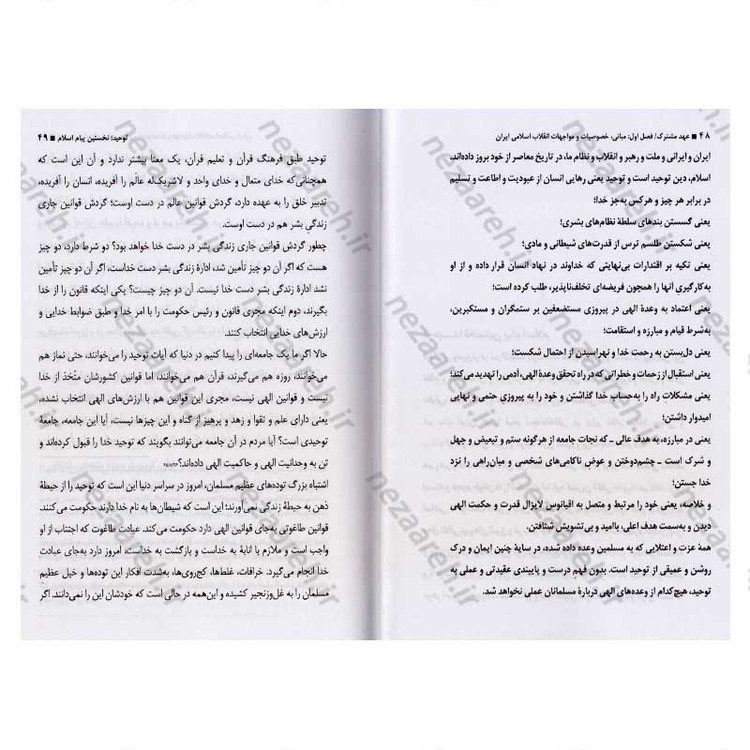 ۴۸ ■ عهد مشترک/ فصل اول: مبانی، خصوصیات و مواجهات انقلاب اسلامی ایران
ایران و ایرانی و ملت و رهبر و انقلاب و نظام ما، در تاریخ معاصر از خود بروز داده‌اند.
اسلام، دین توحید است و توحید یعنی رهایی انسان از عبودیت و اطاعت و تسلیم
در برابر هر چیز و هرکس به‌جز خدا؛
یعنی گسستن بندهای سلطهٔ نظام‌های بشری؛
یعنی شکستن طلسم ترس از قدرت‌های شیطانی و مادی؛
یعنی تکیه بر اقتدارات بی‌نهایتی که خداوند در نهاد انسان قرار داده و از او
به‌کارگیری آنها را همچون فریضه‌ای تخلف‌ناپذیر، طلب کرده است؛
یعنی اعتماد به وعدهٔ الهی در پیروزی مستضعفین بر ستمگران و مستکبرین،
به‌شرط قیام و مبارزه و استقامت؛
یعنی دل‌بستن به رحمت خدا و نهراسیدن از احتمال شکست؛
یعنی استقبال از زحمات و خطراتی که در راه تحقق وعدهٔ الهی، آدمی را تهدید می‌کند؛
یعنی مشکلات راه را به‌حساب خدا گذاشتن و خود را به پیروزی حتمی و نهایی
امیدوار داشتن؛
یعنی در مبارزه، به هدف عالی ـ که نجات جامعه از هرگونه ستم و تبعیض و جهل
و شرک است ـ چشم‌دوختن و عوض ناکامی‌های شخصی و میان‌راهی را نزد
خدا جستن؛
و خلاصه، یعنی خود را مرتبط و متصل به اقیانوس لایزال قدرت و حکمت الهی
دیدن و به‌سمت هدف اعلی، باامید و بی‌تشویش شتافتن.
همهٔ عزت و اعتلایی که به مسلمین وعده داده شده، در سایهٔ چنین ایمان و درک
روشن و عمیقی از توحید است. بدون فهم درست و پایبندی عقیدتی و عملی به
توحید، هیچ‌کدام از وعده‌های الهی دربارهٔ مسلمانان عملی نخواهد شد.
توحید؛ نخستین پیام اسلام ■ ۴۹
توحید طبق فرهنگ قرآن و تعلیم قرآن، یک معنا بیشتر ندارد و آن این است که
همچنانی‌که خدای متعال و خدای واحد و لاشریک‌له عالَم را آفریده، انسان را آفریده،
تدبیر خلق را به عهده دارد، گردش قوانین عالم در دست اوست؛ گردش قوانین جاری
زندگی بشر هم در دست اوست.
چطور گردش قوانین جاری زندگی بشر در دست خدا خواهد بود؟ دو شرط دارد، دو چیز
هست که اگر آن دو چیز تأمین شد، ادارهٔ زندگی بشر دست خداست، اگر آن دو چیز تأمین
نشد ادارهٔ زندگی بشر دست خدا نیست. آن دو چیز چیست؟ یکی اینکه قانون را از خدا
بگیرند، دوم اینکه مجری قانون و رئیس حکومت را با امر خدا و طبق ضوابط خدایی و
ارزش‌های خدایی انتخاب کنند.
حالا اگر ما یک جامعه‌ای را پیدا کنیم در دنیا که آیات توحید را می‌خوانند، حتی نماز هم
می‌خوانند، روزه هم می‌گیرند، قرآن هم می‌خوانند، اما قوانین کشورشان متّخذ از خدا
نیست و قوانین الهی نیست، مجری این قوانین هم با ارزش‌های الهی انتخاب نشده،
یعنی دارای علم و تقوا و زهد و پرهیز از گناه و این چیزها نیست، آیا این جامعه، جامعهٔ
توحیدی است؟ آیا مردم در آن جامعه می‌توانند بگویند که توحید خدا را قبول کرده‌اند و
تن به وحدانیت الهی و حاکمیت الهی داده‌اند؟
اشتباه بزرگ توده‌های عظیم مسلمان، امروز در سراسر دنیا این است که توحید را از حیطهٔ
ذهن به حیطهٔ زندگی نمی‌آورند؛ این است که شیطان‌ها به نام خدا دارند حکومت می‌کنند.
قوانین طاغوتی به‌جای قوانین الهی دارد حکومت می‌کند. عبادت طاغوت که اجتناب از او
واجب است و ملازم با انابهٔ به خداست و بازگشت به خداست، امروز دارد به‌جای عبادت
خدا انجام می‌گیرد. خرافات، غلط‌ها، کج‌روی‌ها، به‌شدت افکار این توده‌ها و خیل عظیم
مسلمان را به غل‌وزنجیر کشیده و این‌همه در حالی است که خودشان این را نمی‌دانند. اگر
nezaareh.ir